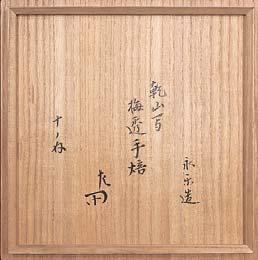 永楽造
乾山写
梅透手焙
十ノ内